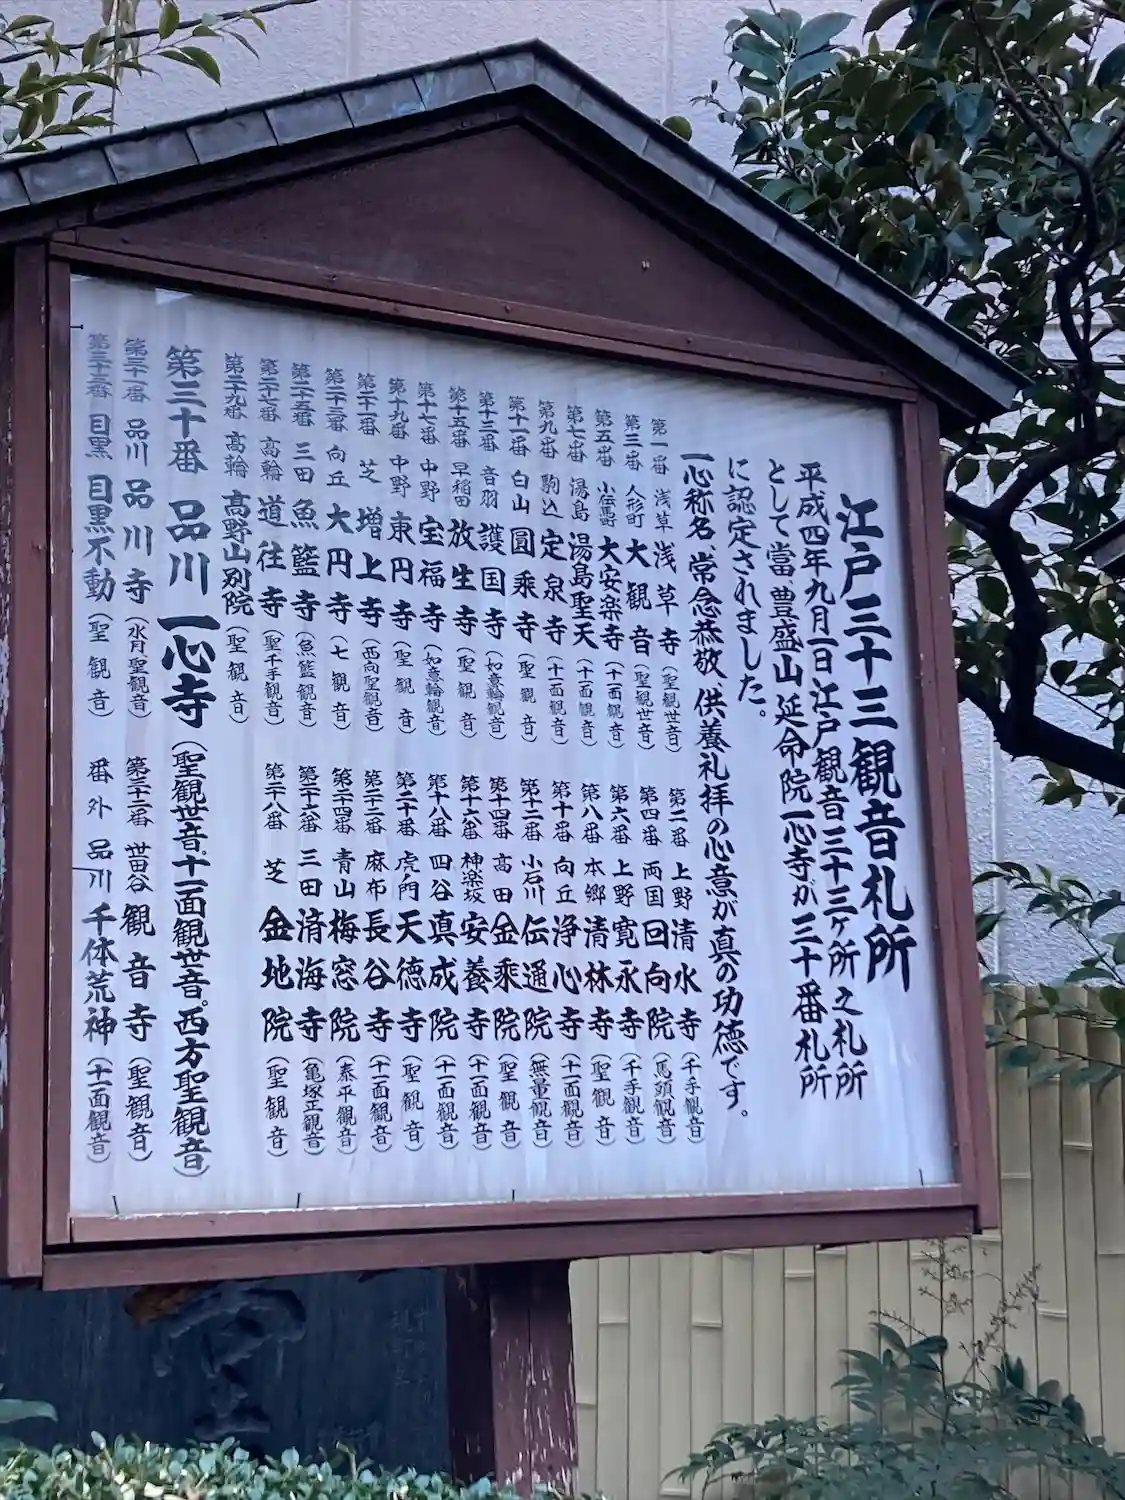 江戸三十三観音札所
平成四年九月一日江戸観音三十三ヶ所之札所
として當、豊盛山延命院一心寺が三十番札所
に認定されました。
一心称名、常念恭敬、供養礼拝の心意が真の功徳です。
第一番 浅草 浅草寺（聖観世音）
第二番 上野 清水寺（千手観音）
第三番 人形町 大観音（聖観世音）
第四番 両国 回向院（馬頭観音）
第五番 小伝馬町 大安楽寺（十一面観音）
第六番 上野 寛永寺（千手観音）
第七番 湯島 湯島聖天（十一面観音）
第八番 本郷 清林寺（聖観音）
第九番 駒込 定泉寺（十一面観音）
第十番 向丘 浄心寺（十一面観音）
第十一番 白山 圓乘寺（聖観音）
第十二番 小石川 伝通院（無量観音）
第十三番 音羽 護国寺（如意輪観音）
第十四番 高田 金乘院（聖観音）
第十五番 早稲田 放生寺（聖観音）
第十六番 神楽坂 安養寺（十一面観音）
第十七番 中野 宝福寺（如意輪観音）
第十八番 四谷 真成院（十一面観音）
第十九番 中野 東円寺（聖観音）
第二十番 虎ノ門 天徳寺（聖観音）
第二十一番 芝 増上寺（西向聖観音）
第二十二番 麻布 長谷寺（十一面観音）
第二十三番 向丘 大円寺（七観音）
第二十四番 青山 梅窓院（泰平観音）
第二十五番 三田 魚籃寺（魚籃観音）
第二十六番 三田 済海寺（亀塚正観音）
第二十七番 高輪 道往寺（聖千手観音）
第二十八番 芝 金地院（聖観音）
第二十九番 高輪 高野山別院（聖観音）
第三十番 品川 一心寺（聖観世音。十一面観世音。西方聖観音）
第三十一番 品川 品川寺（水月聖観音）
第三十二番 世田谷 観音寺（聖観音）
第三十三番 目黒 目黒不動（聖観音）
番外 品川 千体荒神（十一面観音）